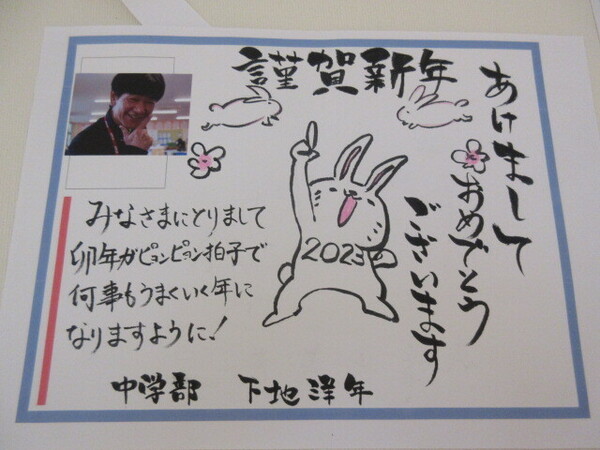 謹賀新年
あけまして
おめでとう
ございます
2023
みなさまにとりまして
卯年がピョンピョン拍子で
何事もうまくいく年に
なりますように!
中学部 下地洋年